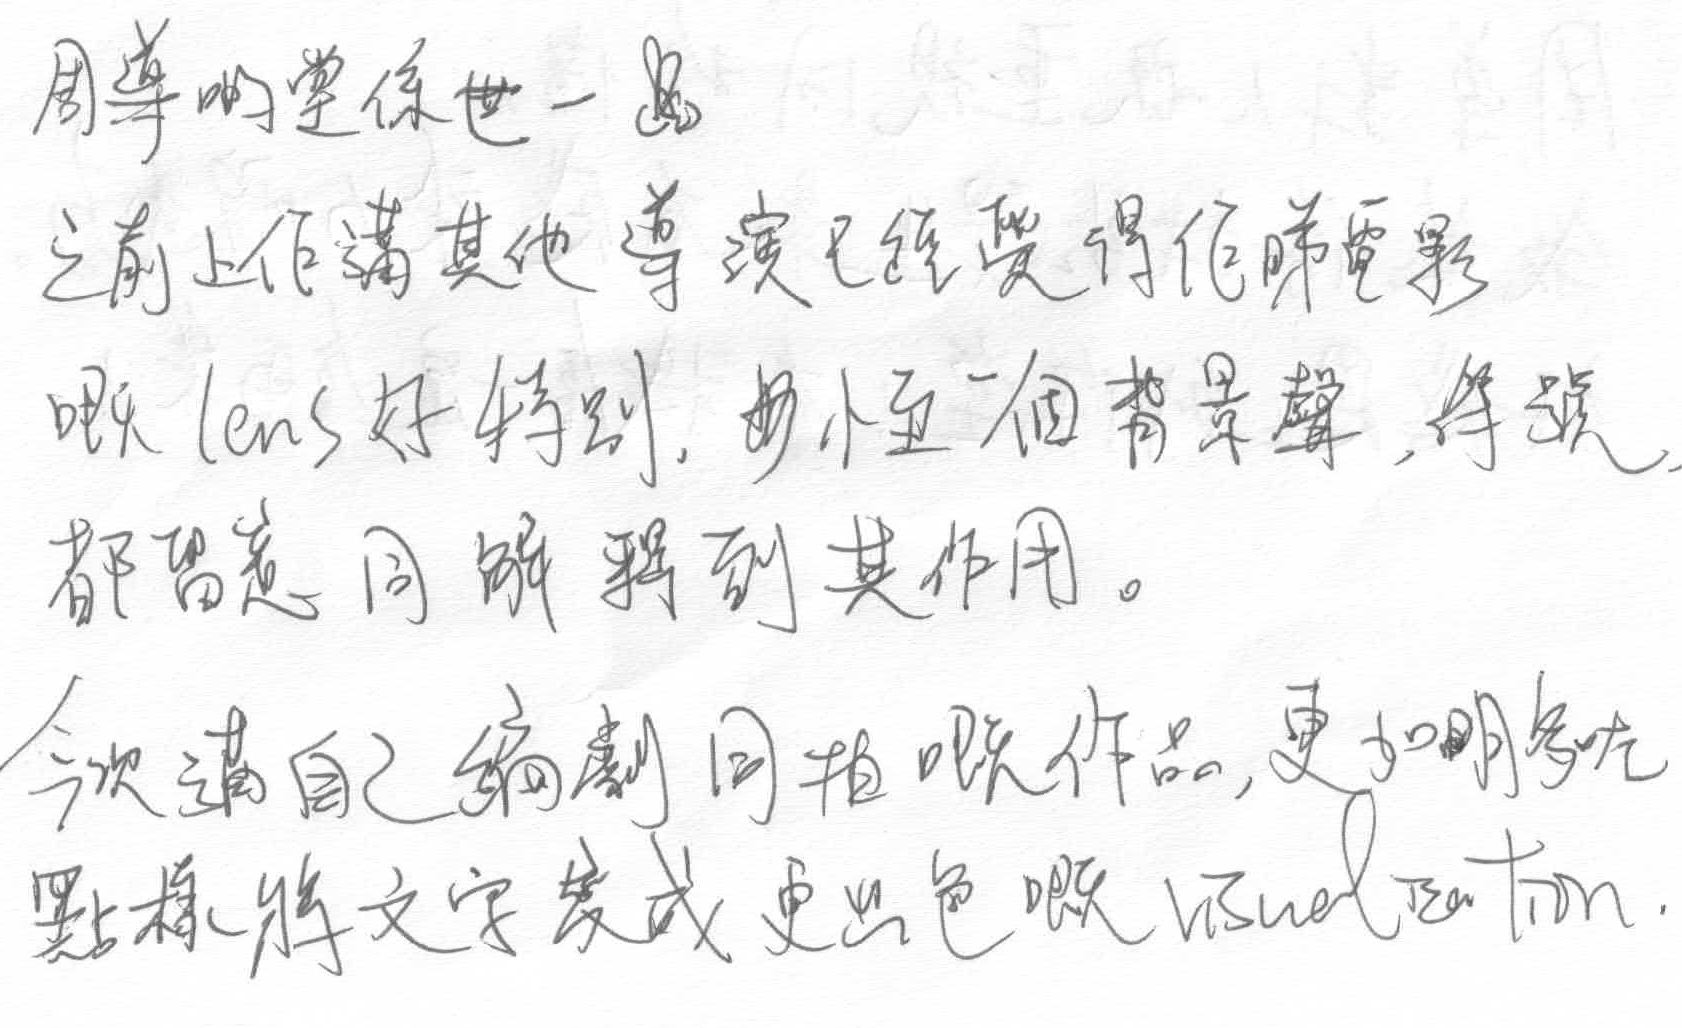 周導啲堂係世一
之前上佢講其他導演已經覺得佢睇電影
嘅lens好特別，要小至一個背景聲，符號，
都留意同解釋到其作用。
今次講自己編劇同拍嘅作品，更加明多咗
點樣將文字變成更出色嘅visualization.